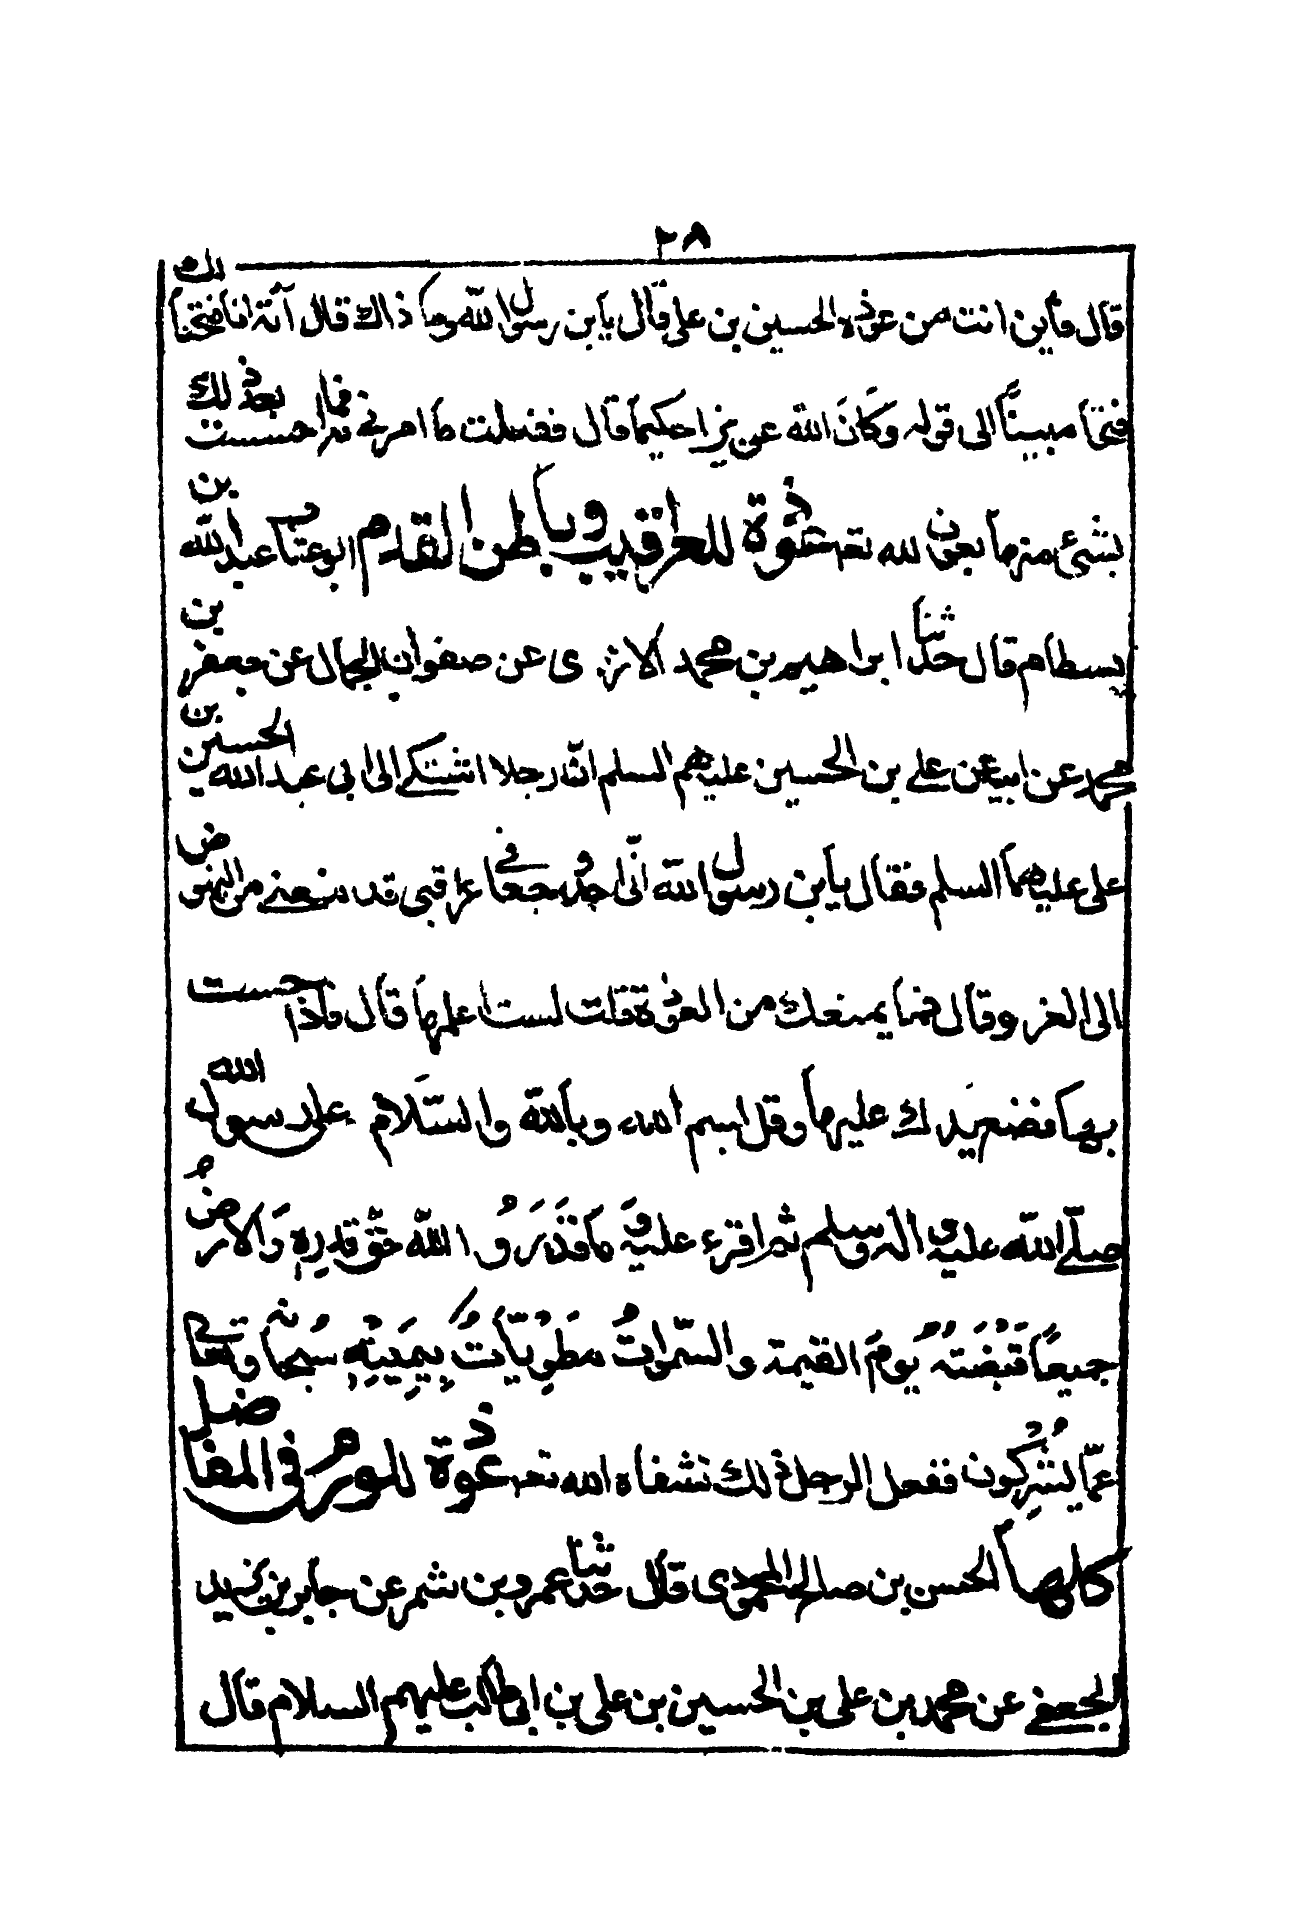 ٢٨
قال فاين انت من عوذة الحسين بن على قال يابن رسول الله وما ذاك قال آية انا فتحنا لك
فتحا مبينًا الى قوله وَكَانَ الله عزيزا حكيما قال ففعلت ما امرنى فما احسست بعد ذلك
بشئ منها بعون الله تعه عوذة للعراقيب وباطن القدم ابو عتاب عبد الله بن
بسطام قال حدّثنا ابراهيم بن محمد الازدى عن صفوان الجمال عن جعفر بن
محمد عن ابيه عن على بن الحسين عليهم السلم انّ رجلا اشتكى الى ابى عبد الله الحسين بن
على عليهما السلم فقال يابن رسول الله انّى اجد وجعا فى عراقيبى قد منعنى من النهوض
الى الغزو قال فما يمنعك من العوذة قلت لست اعلمها قال فاذا احسست
بها فضع يدك عليها وقل بسم الله وبالله والسّلام على رسول الله
صلى الله عليه وآله وسلم ثم اقرء عليه وَ مَا قَدَرُوا اللّهَ حَقَّ قَدرِهِ وَالاَرضُ
جميعًا قَبْضَتُهُ يَومَ القيمة والسّمواتُ مَطوِيّاتٌ بِيَمِينِهِ سُبحانه وتعالى
عمّا يُشرِكُون ففعل الرجل ذلك فشفاه الله تعه عوذة للورم فى المفاصل
كلها الحسن بن صالح المحمودى قال حدثنا عمرو بن شمر عن جابر بن يزيد
الجعفى عن محمد بن على بن الحسين بن على بن ابى طالب عليهم السلام قال